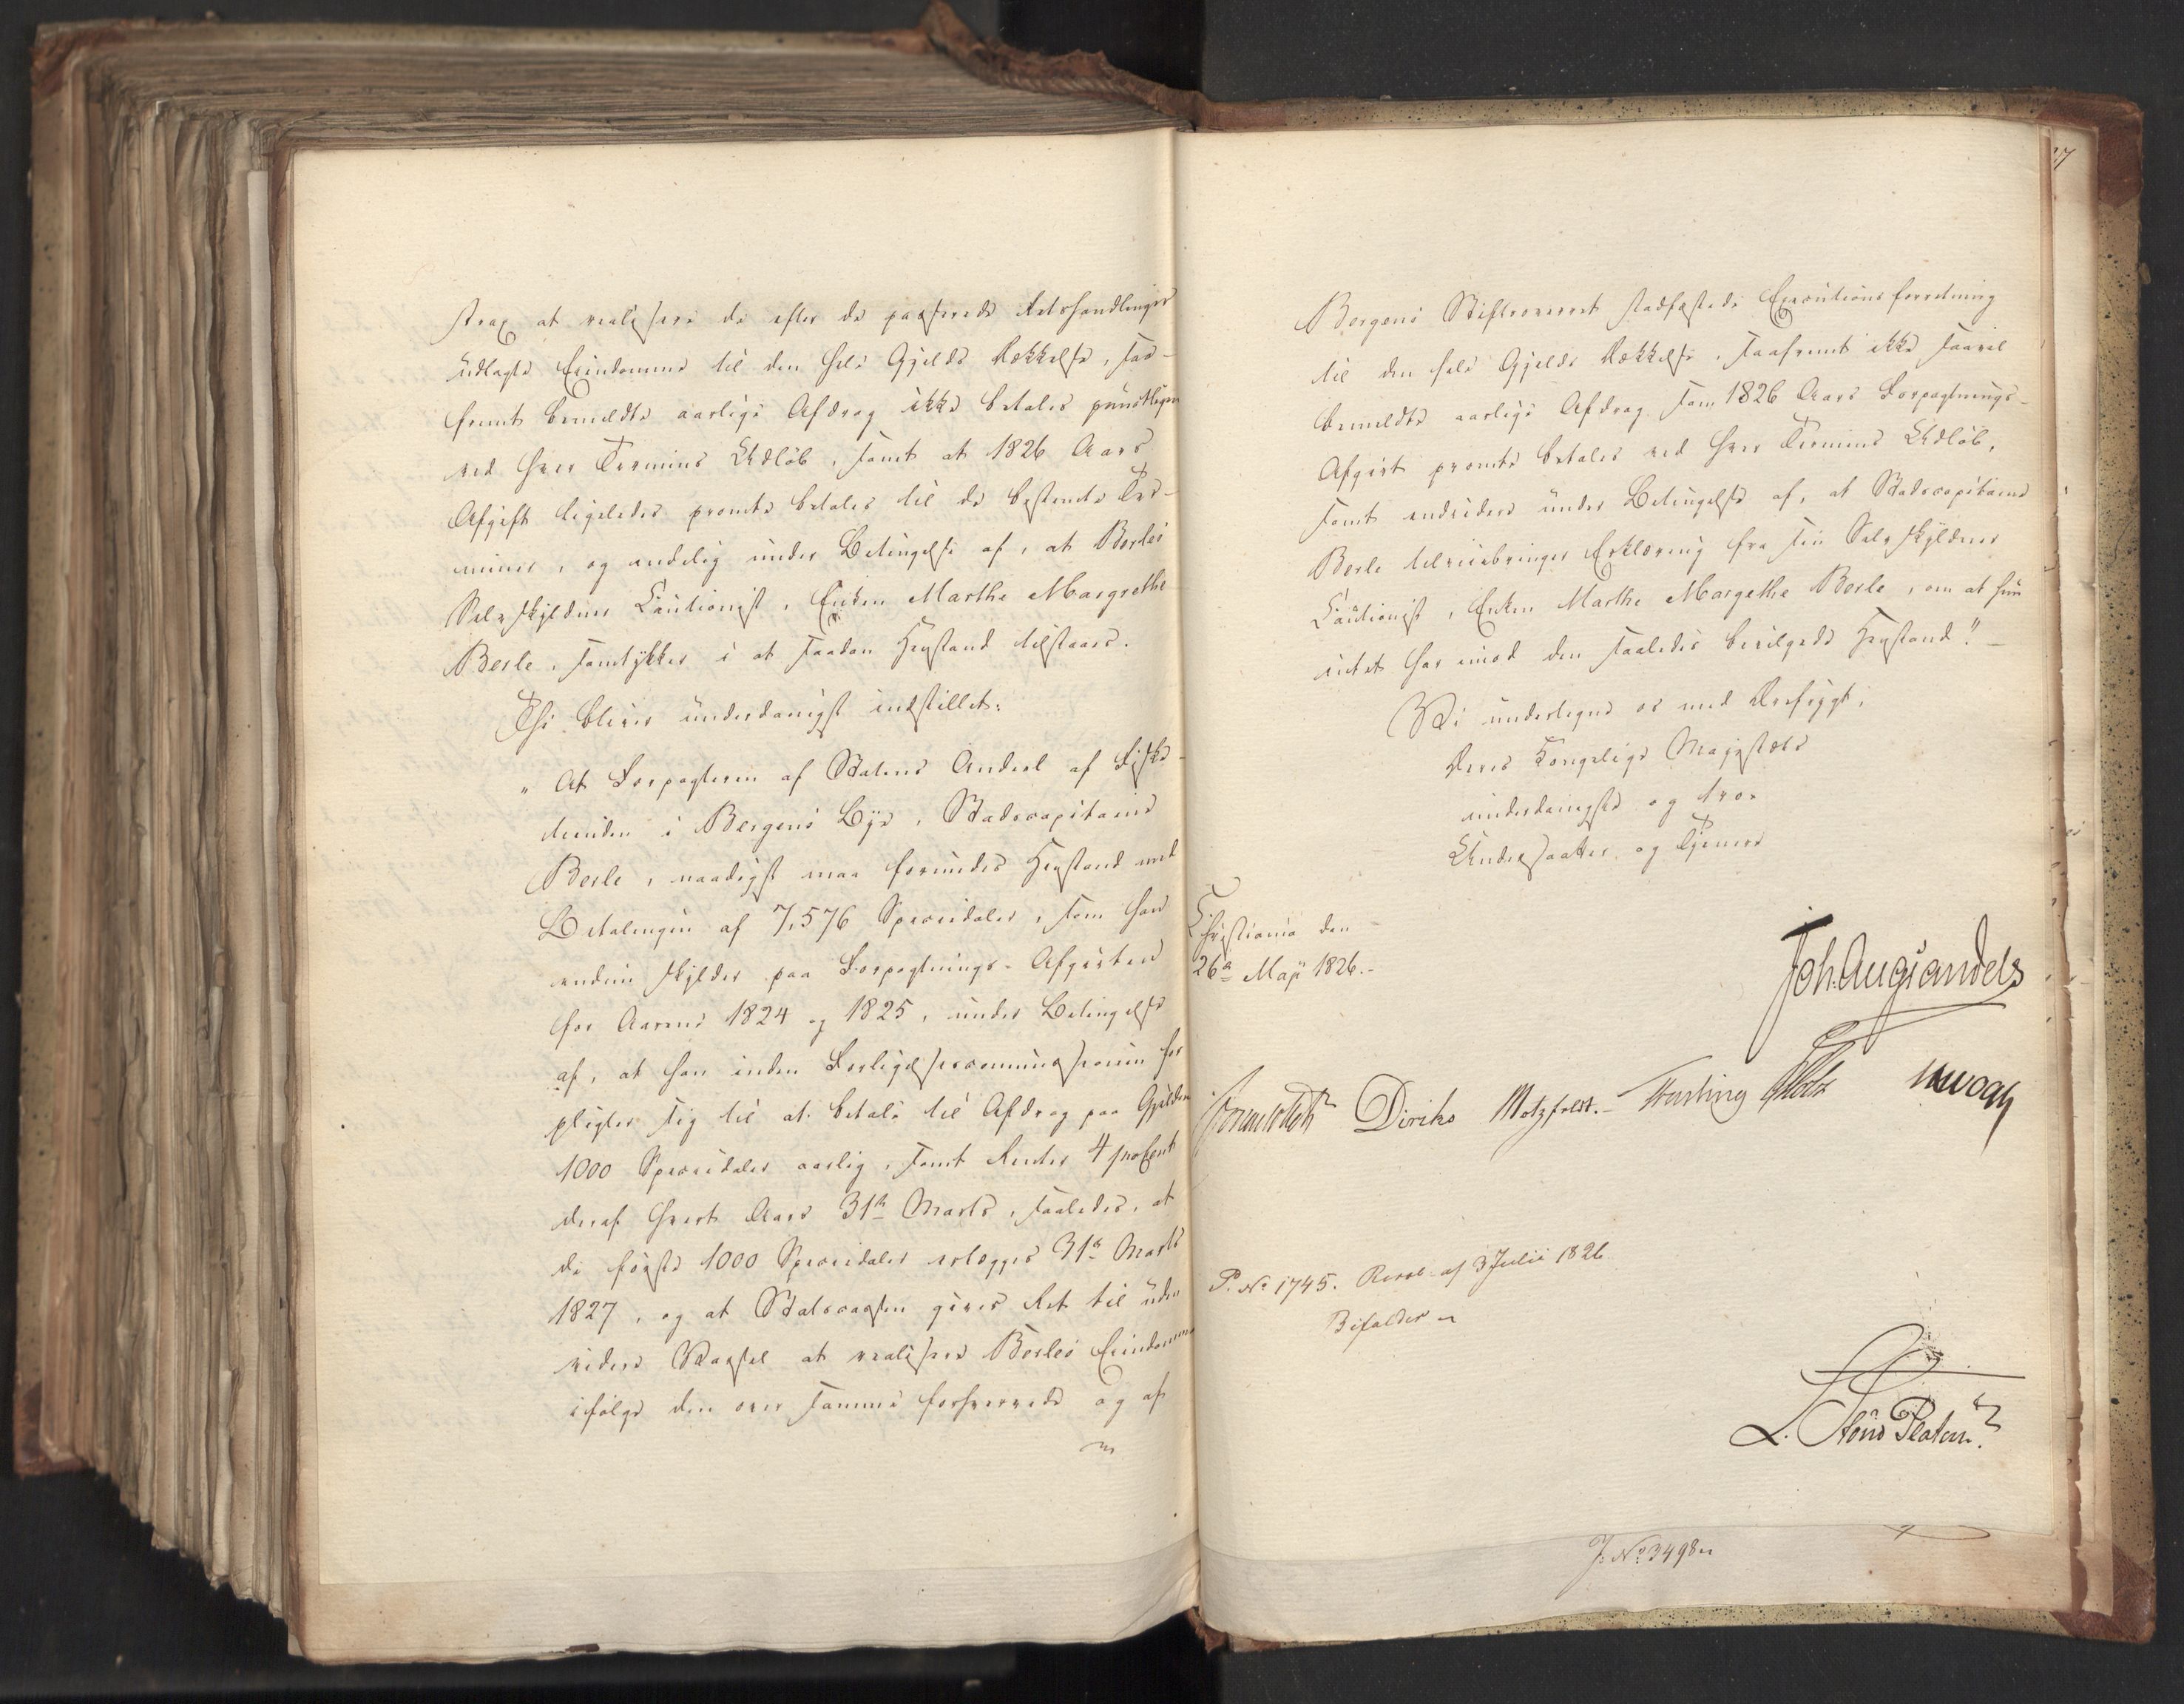 strax at realisere de efter de passerede Retshandlinger
udlagte Eiendomme til den hele Gjelds Dækkelse, saa-
fremt bemeldte aarlige Afdrag ikke betales punctligen
ved hver Termins Udløb, samt at 1826 Aars
Afgift ligeledes promte betales til de bestemte Ter-
miner, og endelig under Betingelse af, at Berles
Selvskyldner Cautionist, Enken Marthe Margrethe
Berle, samtykker i at saadan Henstand tilstaaes.
Thi bliver underdanigst indstillet:
"At Forpagteren af Statens Andeel af Fiske-
tienden i Bergens Bye, Stadscapitaine
Berle, naadigst maa forundes Henstand med
Betalingen af 7,576 Speciedaler, som han
endnu skylder paa Forpagtnings-Afgivten
for Aarene 1824 og 1825, under Betingelse
af, at han inden Forligelsescommissionen for
pligter sig til at betale til Afdrag paa Gjelden
1000 Speciedaler aarlig, samt Renter 4 proCent
deraf hvert Aars 31te Marts, saaledes, at
de første 1000 Speciedaler erlægges 31te Marts
1827, og at Statscassen gives Ret til uden
videre Varsel at realisere Berles Eiendomme
ifølge den over samme forhvervede og af
Bergens Stiftsoverret stadfæstede Executionsforretning
til den hele Gjelds Dækkelse, saafremt ikke saavel
bemeldte aarlige Afdrag som 1826 Aars Forpagtnings-
Afgivt promte betales ved hver Termins Udløb,
samt endvidere under Betingelse af, at Stadscapitaine
Berle tilveiebringer Erklæring fra sin Selvskyldner
Cautionist, Enken Marthe Margethe Berle, om at hun
intet har imod den saaledes bevilgede Henstand". -
Vi undertegne os med Ærefrygt,
Deres Kongelige Majestæts
underdanigste og troe
Undersaatter og Tjenere
Christiania den
26de Maji 1826.-
Joh. Aug. Sandels
Diriks Motzfeldt.- Fasting Holst
P. No 1745. Resol. af 3 Julii 1826
Bifaldes
L. v. Platen.
J. No 3498